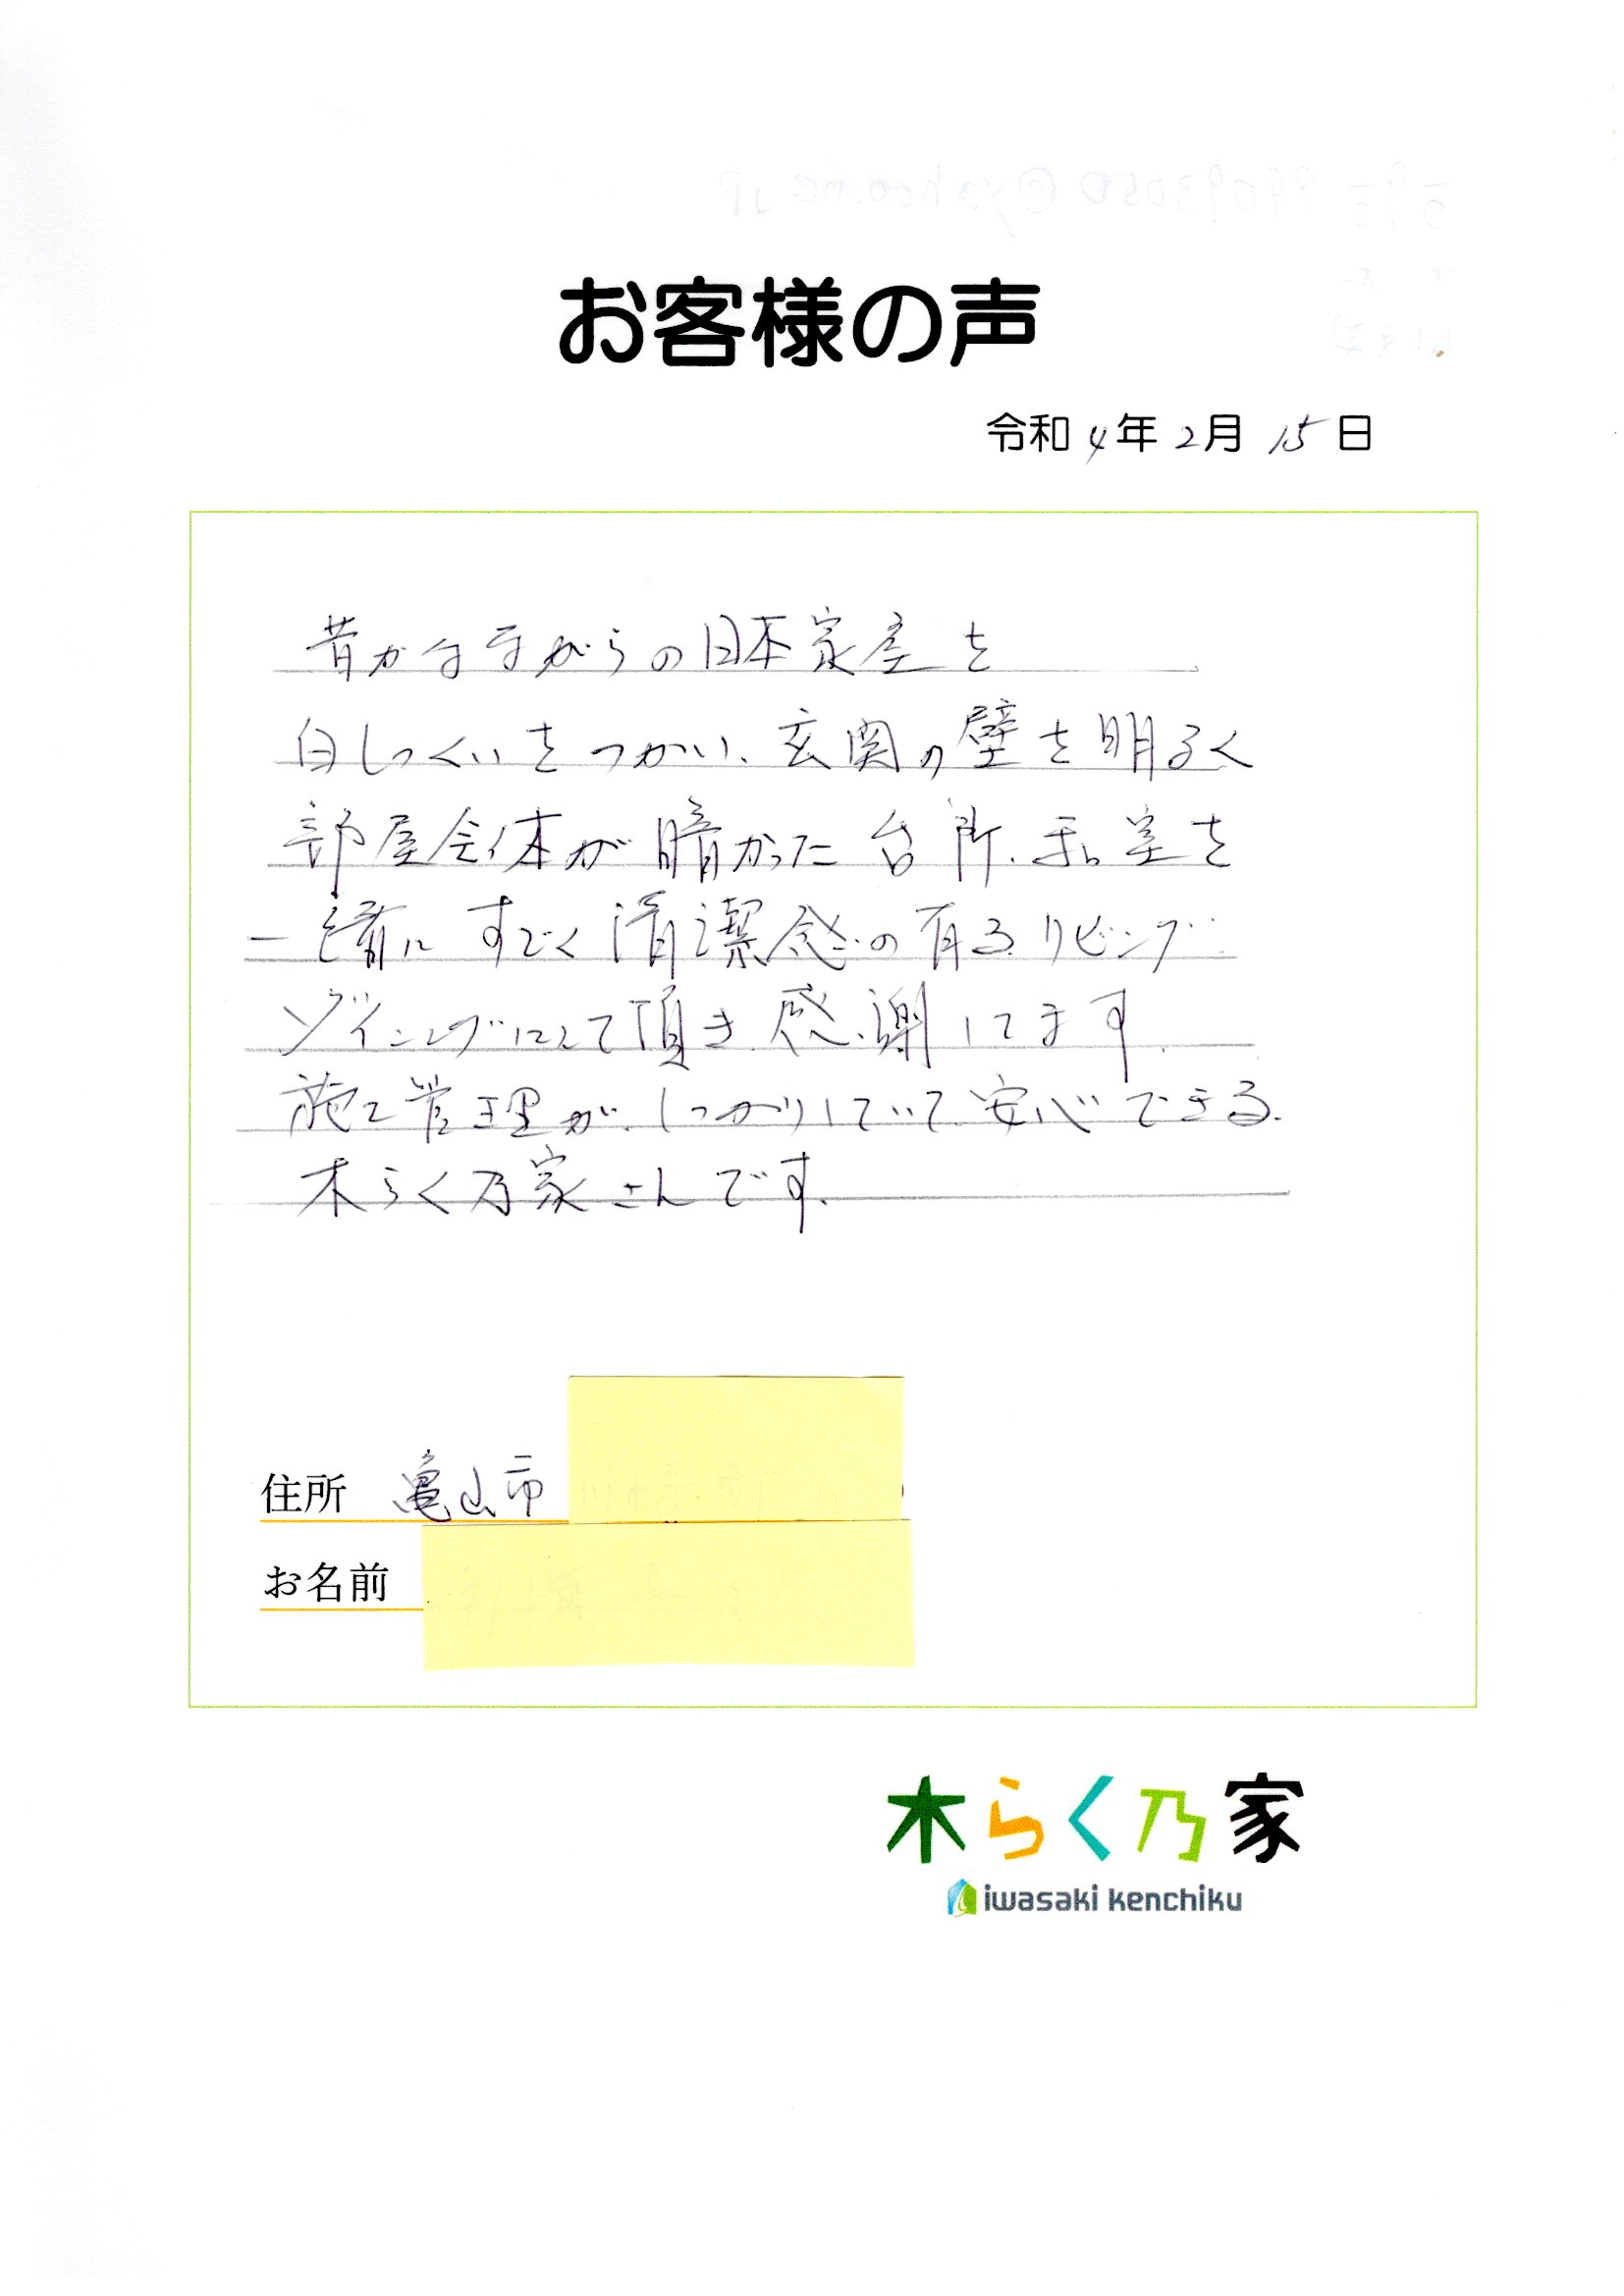 お客様の声
令和4年2月15日
昔かながらの日本家屋を
白しっくいをつかい、玄関の壁を明るく
部屋全体が暗かった台所、和室を
一緒にすごく清潔感の有るリビング
ダイニングにして頂き感謝してます。
施工管理が、しっかりしていて安心できる。
木らく乃家さんです。
住所 亀山市
お名前
木らく乃家
iwasaki kenchiku